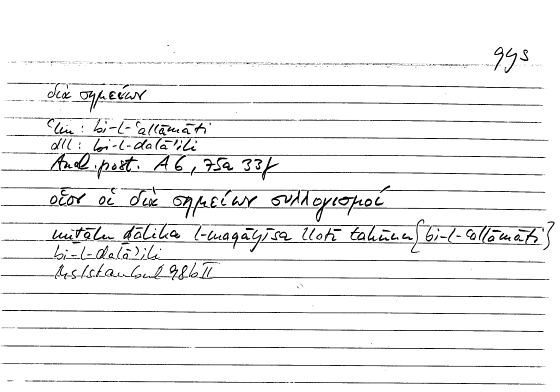 qys
διὰ σημείων
ʿlm: bi-l-ʿallāmāti
dll: bi-l-dalāʾili
Anal. post. A 6, 75a 33f
οἷον οἱ διὰ σημείων συλλογισμοί
mitālu dālika l-maqāyīsa llatī takūnu {bi-l-ʿallāmāti}
bi-l-dalāʾili
Ms Istanbul 98b II